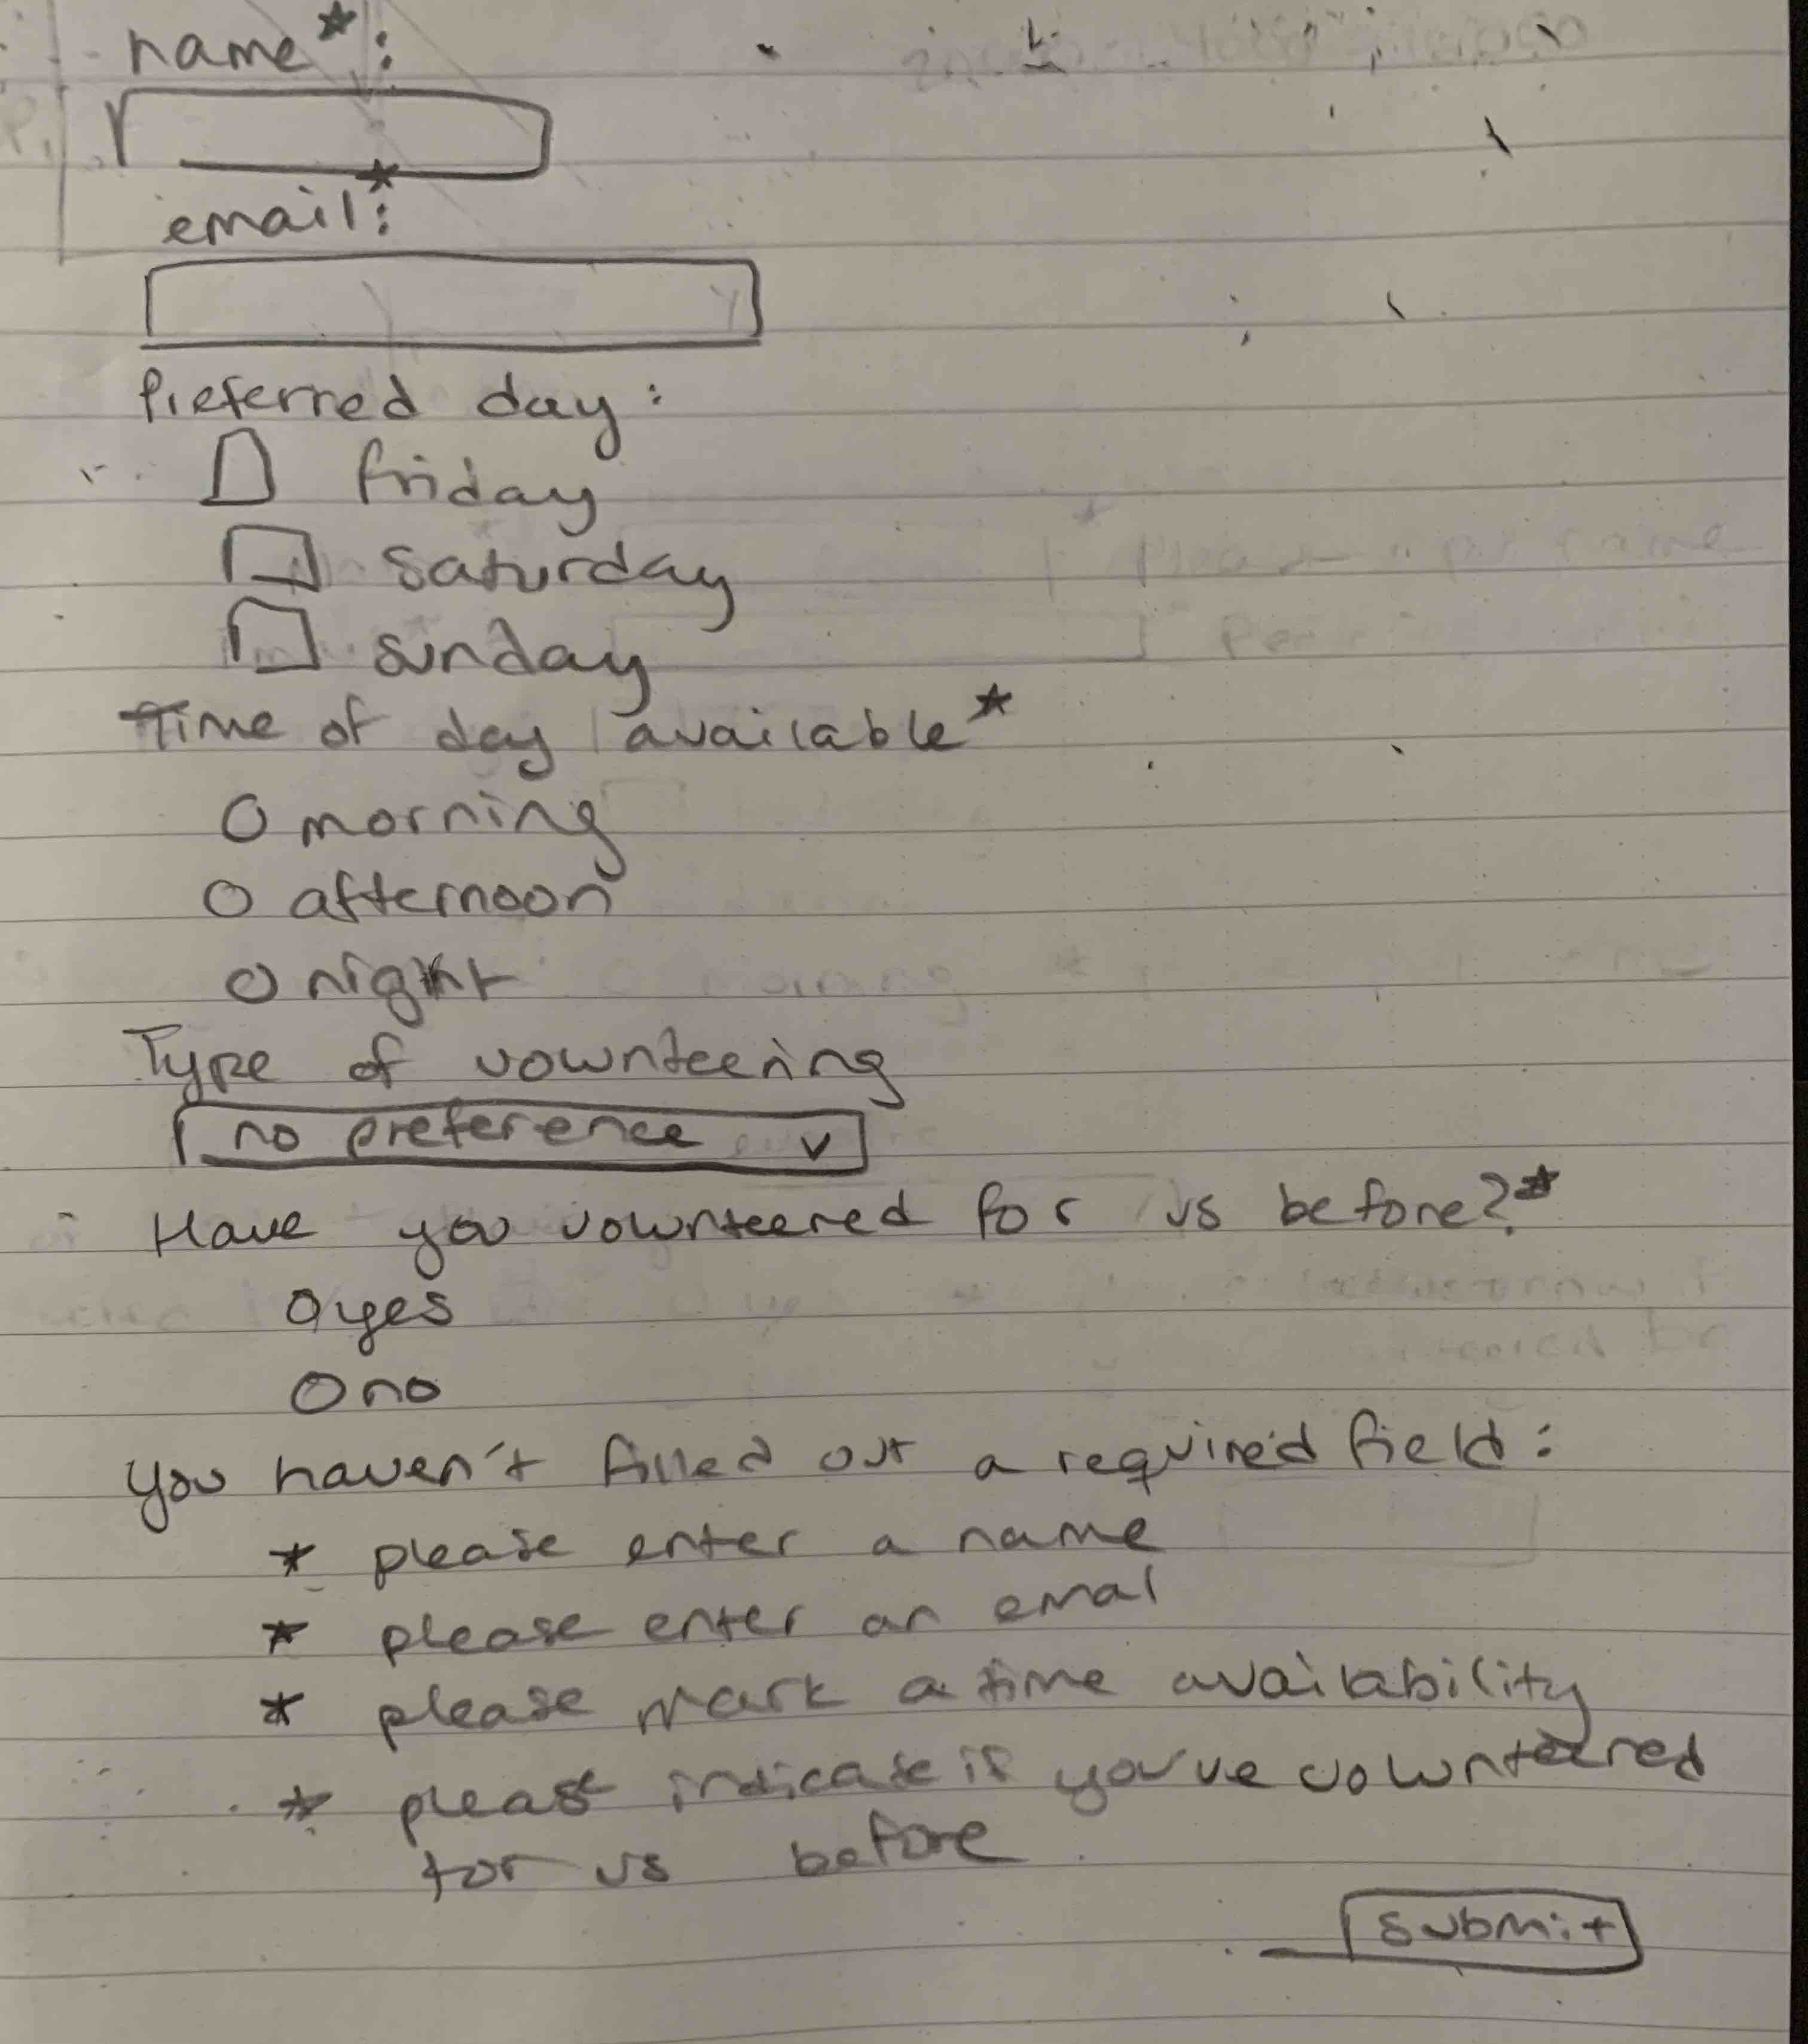 name*:
email*:
Preferred day:
friday
saturday
sunday
Time of day available*
O morning
O afternoon
O night
Type of volunteering
no preference v
Have you volunteered for us before?*
O yes
O no
you haven't filled out a required field:
* please enter a name
* please enter an emal
* please mark a time availability
* please indicate if you've volunteered
for us before
submit